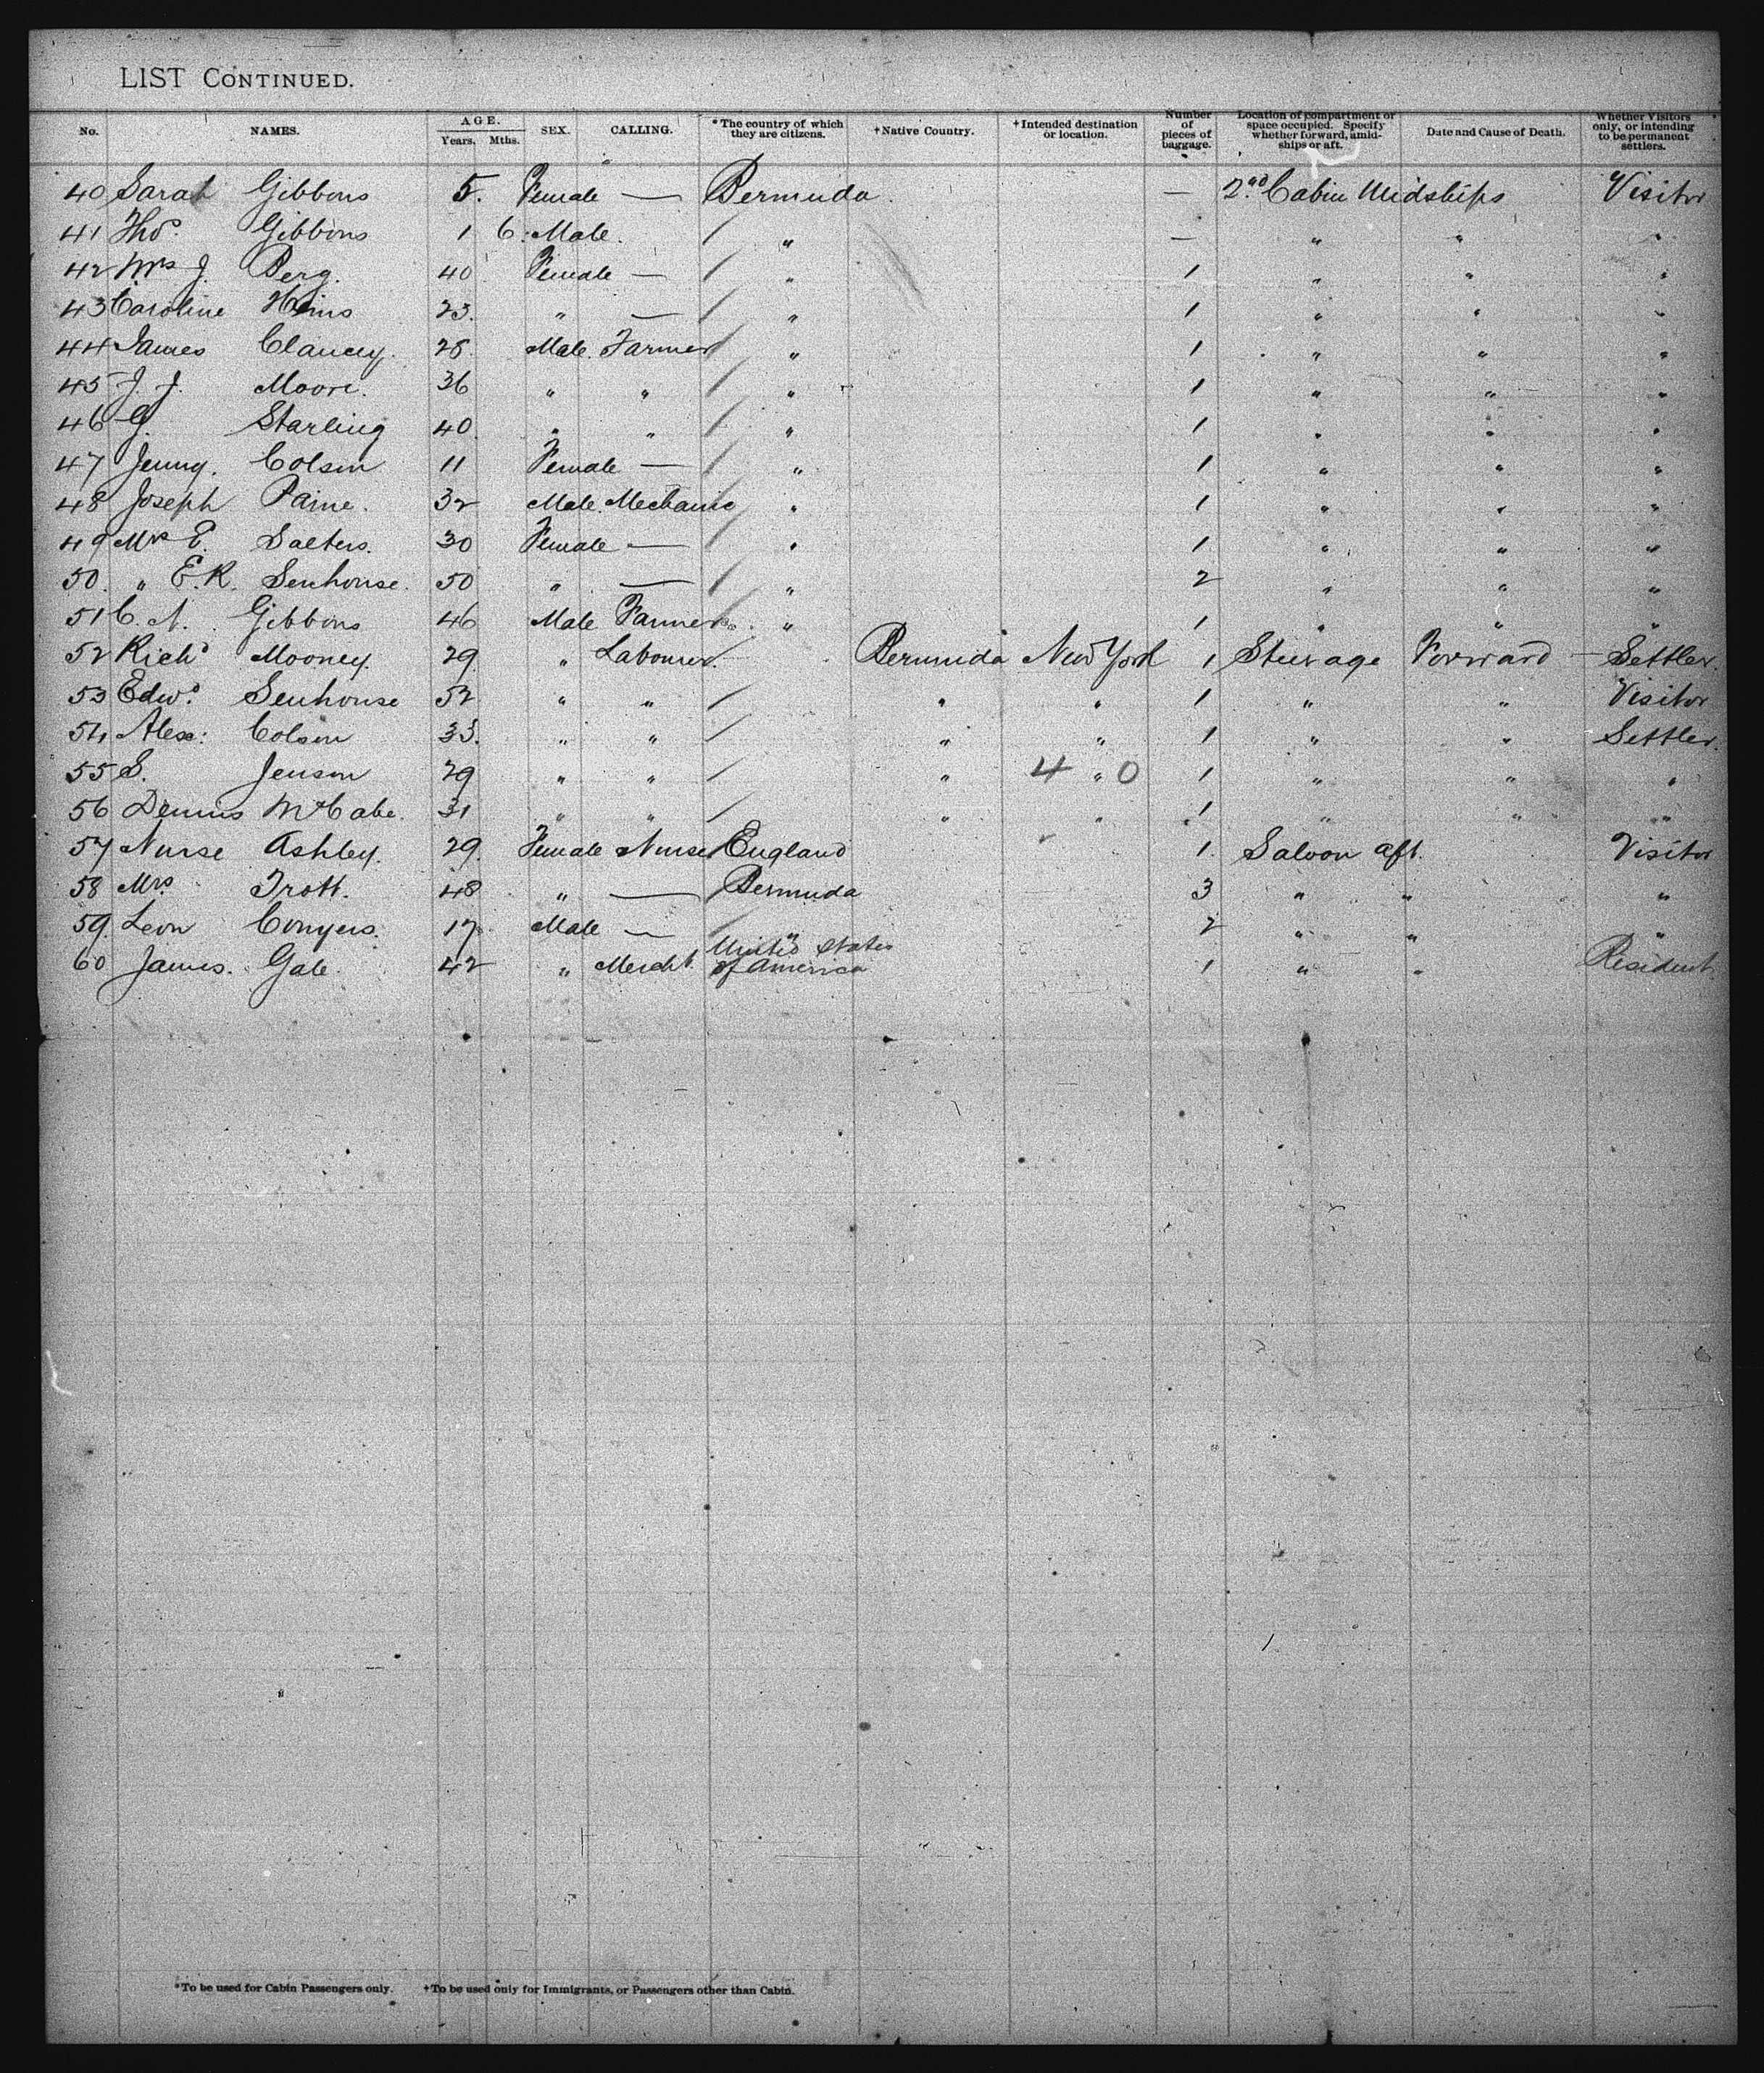 LIST CONTINUED.
No. NAMES. AGE. Years. Mths. SEX. CALLING. *The country of which they are citizens. †Native Country. †Intended destination or location. Number of pieces of baggage. Location of compartment or space occupied. Specify whether forward, amidships or aft. Date and Cause of Death. Whether Visitors only, or intending to be permanent settlers.
40 Sarah Gibbons 5. Female — Bermuda. — 2nd Cabin Midships Visitor
41 Thos. Gibbons 1 6. Male. / " — " " "
42 Mrs J. Berg. 40 Female — / " 1 " " "
43 Caroline 23. " — / " 1 " " "
44 James Clancy. 28. Male. Farmer / " 1 " " "
45 J. J. Moore. 36 " " / " 1 " " "
46 G. Starling 40. " " / " 1 " " "
47 Jenny. Colson 11 Female — / " 1 " " "
48 Joseph Paine. 32 Male. Mechanic / " 1 " " "
49 Mrs E. Salters. 30 Female — / " 1 " " "
50. " E.R. Senhouse. 50 " — / " 2 " " "
51 C. N. Gibbons 46 Male Farmer / " 1 " " "
52 Richd Mooney. 29. " Labourer. Bermuda New York 1 Steerage Forward — Settler.
53 Edwd. Senhouse 52 " " / " " 1 " " Visitor
54 Alex: Colson 33. " " / " " 1 " " Settler.
55 S. Jenson 29 " " / " 4 " 0 1 " " "
56 Dennis McCabe. 31 " " / " " 1 " " "
57 Nurse Ashley. 29. Female Nurse England 1. Saloon aft. Visitor
58 Mrs. Trott. 48 " — Bermuda 3 " " "
59. Leon Conyers. 17. Male — / " 2 " " "
60 James. Gale. 42 " Mercht. United States of America 1 " " Resident
*To be used for Cabin Passengers only. †To be used only for Immigrants, or Passengers other than Cabin.